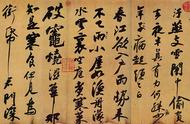 污燕支雪闇中偷負
去夜半真有力何殊少
年子病起頭已白
春江欲入戶雨勢來
不已雨小屋如漁舟濛濛
水雲裏空庖煮寒菜
破竈燒濕葦那
知是寒食但見烏
銜帋君門深